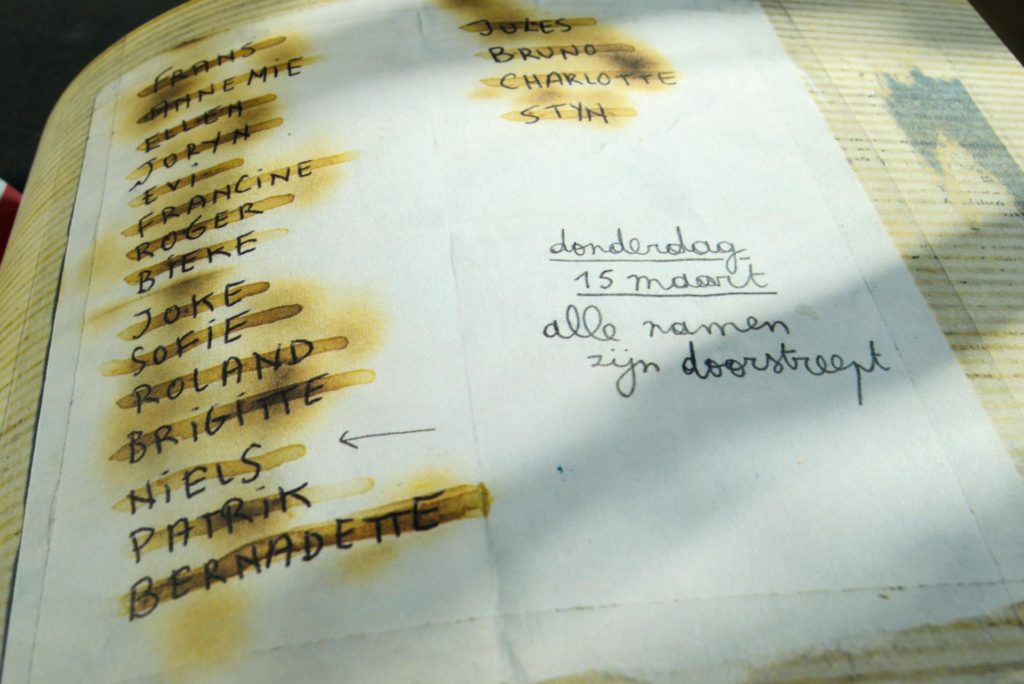 FRANS
ANNEMIE
ELLEN
JORYN
EVI
FRANCINE
ROGER
BIEKE
JOKE
SOFIE
ROLAND
BRIGITTE
NIELS
PATRIK
BERNADETTE
JULES
BRUNO
CHARLOTTE
STYN
donderdag
15 maart
alle namen
zijn doorstreept